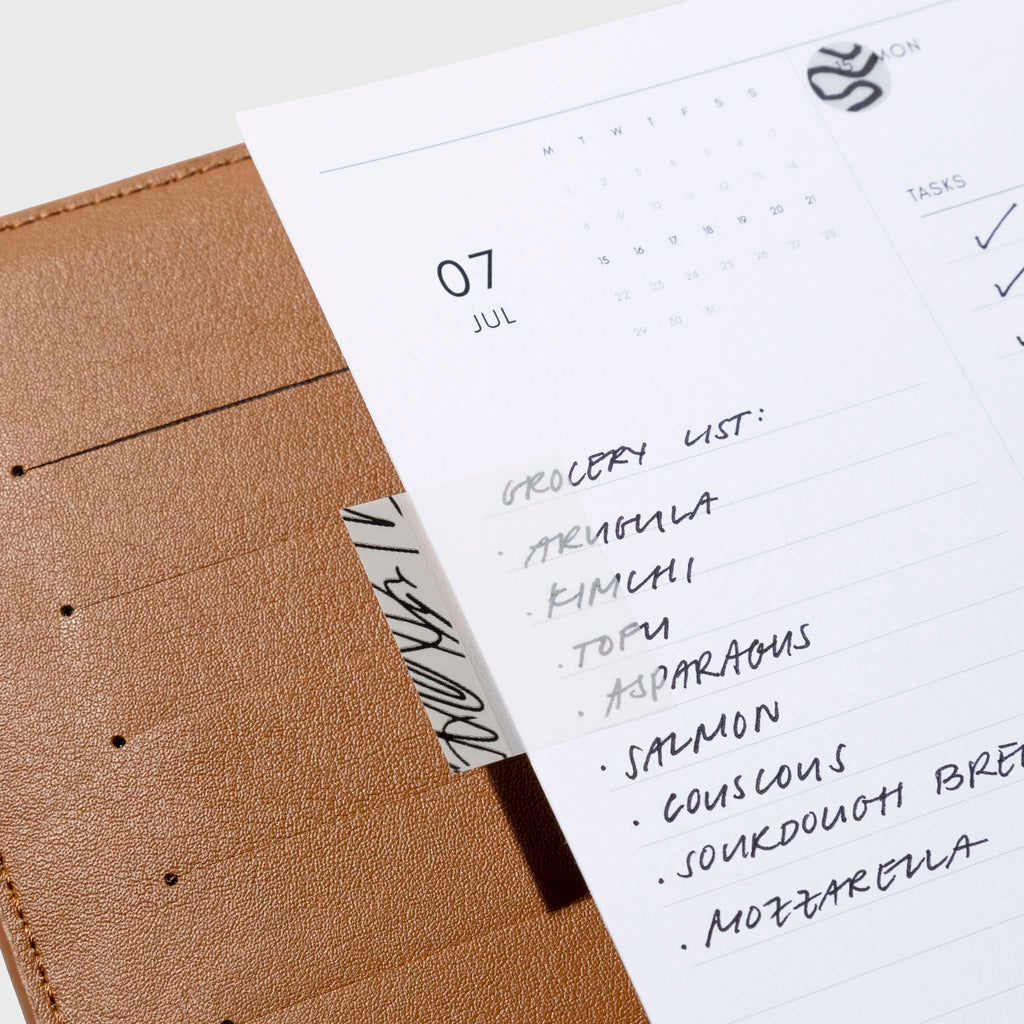 15 MON
M T W T F S S
1 2 3 4 5 6 7
8 9 10 11 12 13 14
15 16 17 18 19 20 21
22 23 24 25 26 27 28
29 30 31
07
JUL
TASKS
GROCERY LIST:
· ARUGULA
· KIMCHI
· TOFU
· ASPARAGUS
· SALMON
· COUSCOUS
· SOURDOUGH BREA
· MOZZARELLA